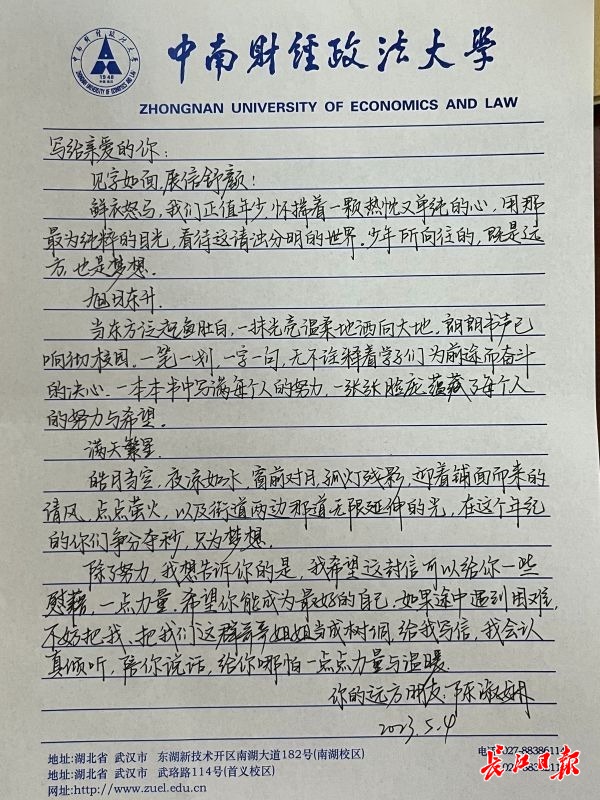 中南财经政法大学
1948
中国·武汉
ZHONGNAN UNIVERSITY OF ECONOMICS AND LAW
中南财经政法大学
ZHONGNAN UNIVERSITY OF ECONOMICS AND LAW
写给亲爱的你:
见字如面,展信舒颜!
鲜衣怒马,我们正值年少,怀揣着一颗热忱又单纯的心,用那
最为纯粹的目光,看待这清浊分明的世界.少年所向往的,既是远
方,也是梦想.
旭日东升.
当东方泛起鱼肚白,一抹光亮温柔地洒向大地,朗朗书声已
响彻校园.一笔一划,一字一句,无不诠释着学子们为前途而奋斗
的决心.一本本书中写满每个人的努力,一张张脸庞蕴藏了每个人
的努力与希望.
满天繁星.
皓月当空,夜凉如水,窗前对月,孤灯残影,迎着铺面而来的
清风,点点萤火,以及街道两边那道无限延伸的光,在这个年纪
的你们争分夺秒,只为梦想.
除了努力,我想告诉你的是,我希望这封信可以给你一些
慰藉,一点力量.希望你能成为最好的自己,如果途中遇到困难,
不妨把我、把我们这群哥哥姐姐当成树洞,给我写信,我会认
真倾听,陪你说话,给你哪怕一点点力量与温暖.
你的远方朋友:
2023.5.4
地址:湖北省 武汉市 东湖新技术开发区南湖大道182号(南湖校区)
电话:027-8838611
地址:湖北省 武汉市 武珞路114号(首义校区)
网址:http://www.zuel.edu.cn
长江日报